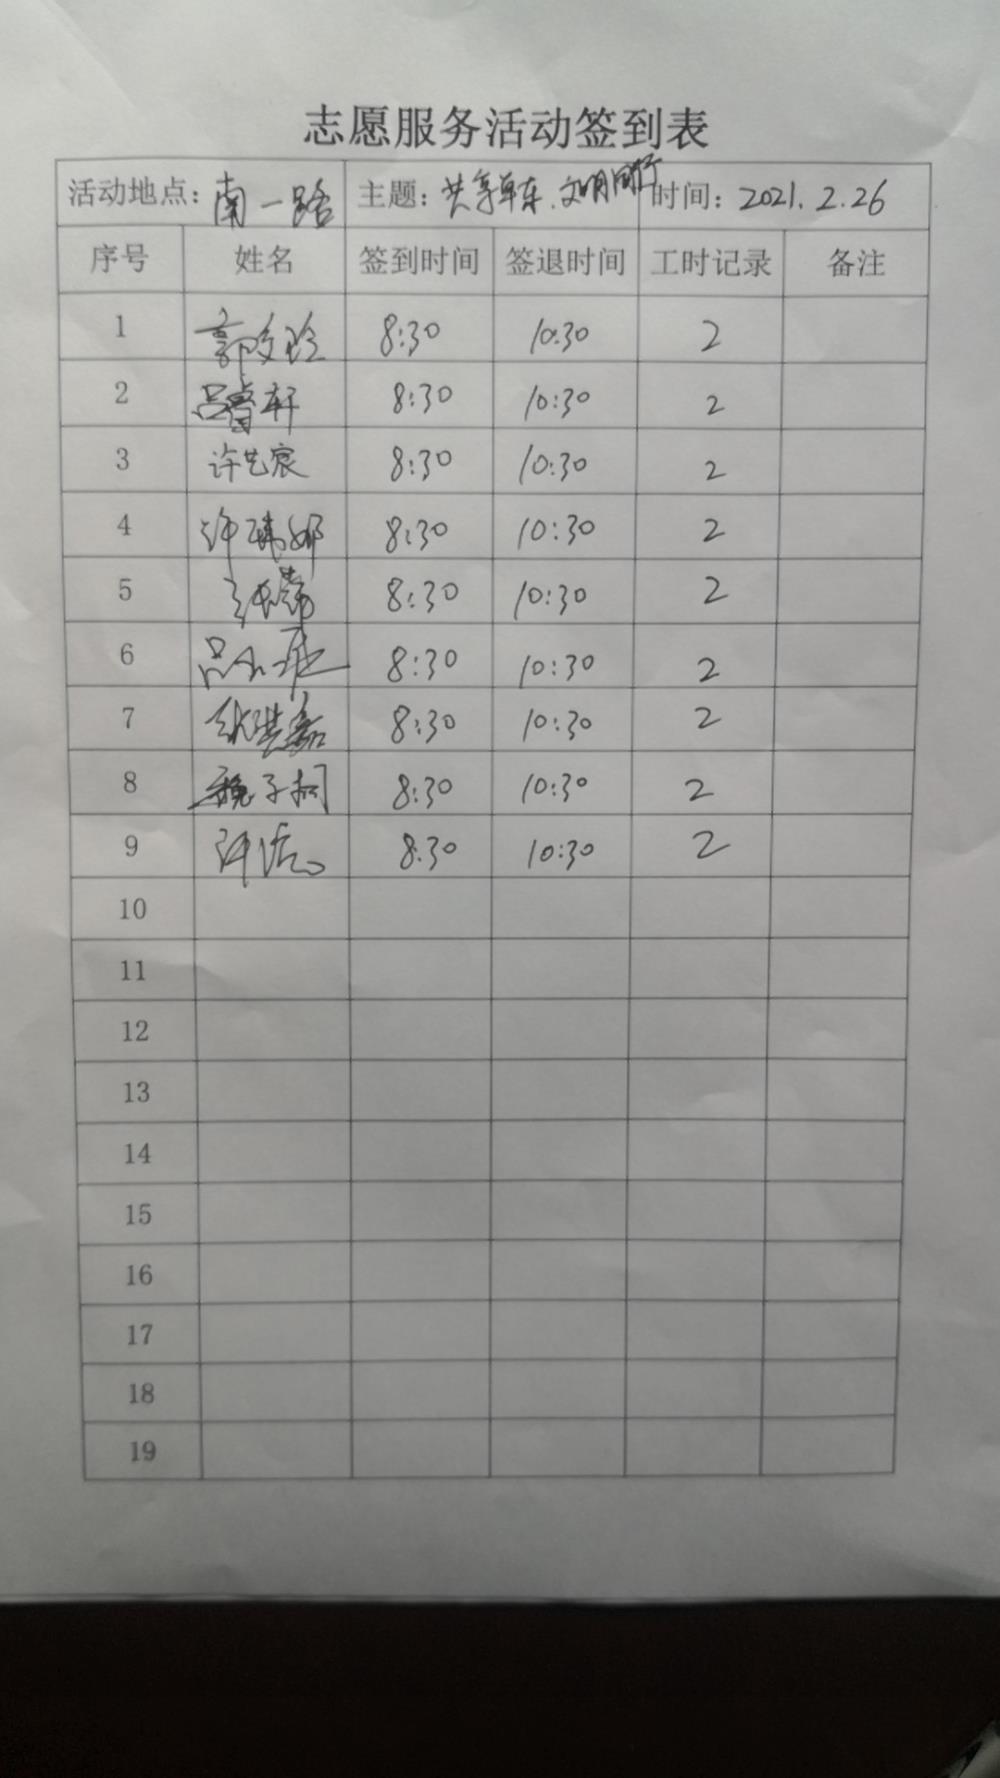 志愿服务活动签到表
活动地点：南一路 主题：共享单车.文明同行 时间：2021.2.26
序号 姓名 签到时间 签退时间 工时记录 备注
1 郭文玲 8:30 10:30 2
2 吕睿轩 8:30 10:30 2
3 许艺宸 8:30 10:30 2
4 许 娜 8:30 10:30 2
5 8:30 10:30 2
6 吕 8:30 10:30 2
7 8:30 10:30 2
8 魏子桐 8:30 10:30 2
9 许 8:30 10:30 2
10
11
12
13
14
15
16
17
18
19